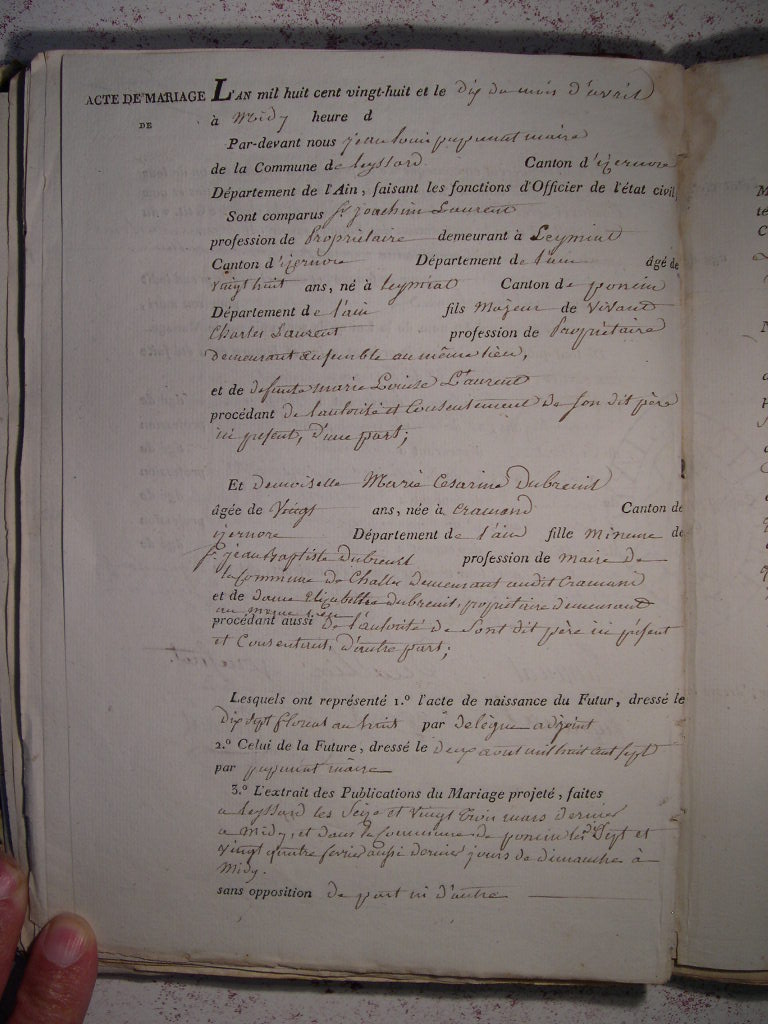 ACTE DE MARIAGE L'AN mil huit cent vingt-huit et le dix du mois d'avril
DE
à Midy heure d
Par-devant nous jean louis papunat maire
de la Commune de leyssard Canton d'izernore
Département de l'Ain, faisant les fonctions d'Officier de l'état civil,
Sont comparus sr. joachim Laurent
profession de Propriétaire demeurant à Leymiat
Canton d'izernore Département de l'ain âgé de
vaingt huit ans, né à leymiat Canton de poncin
Département de l'ain fils Majeur de Vivant
Charles Laurent profession de Propriétaire
demeurant ensemble au même lieu,
et de defunte marie Louise Laurent
procédant de l'autorité et Consentement de son dit père
ici présent, d'une part;
Et demoiselle Marie Cesarine Dubreuil
âgée de Vingt ans, née à Cramand Canton de
izernore Département de l'ain fille Mineure de
sr. jean Baptiste Dubreuil profession de maire de
la Commune de Challes demeurant audit Cramand
et de dame Elizabeth Dubreuil, propriétaire demeurant
au meme lieu
procédant aussi de l'autorité de Sont dit père ici présent
et Consentant, d'autre part;
Lesquels ont représenté 1.º l'acte de naissance du Futur, dressé le
Dix sept floreal an huit par adjoint
2.º Celui de la Future, dressé le deux aout mil huit cent sept
par papunat maire
3.º L'extrait des Publications du Mariage projeté, faites
a leyssard les Seize et vingt trois mars dernier
a Midy, et dans la Commune de poncin les dix Sept et
vingt quatre fevrier aussi dernier jours de dimanche à
Midy.
sans opposition de part ni d'autre